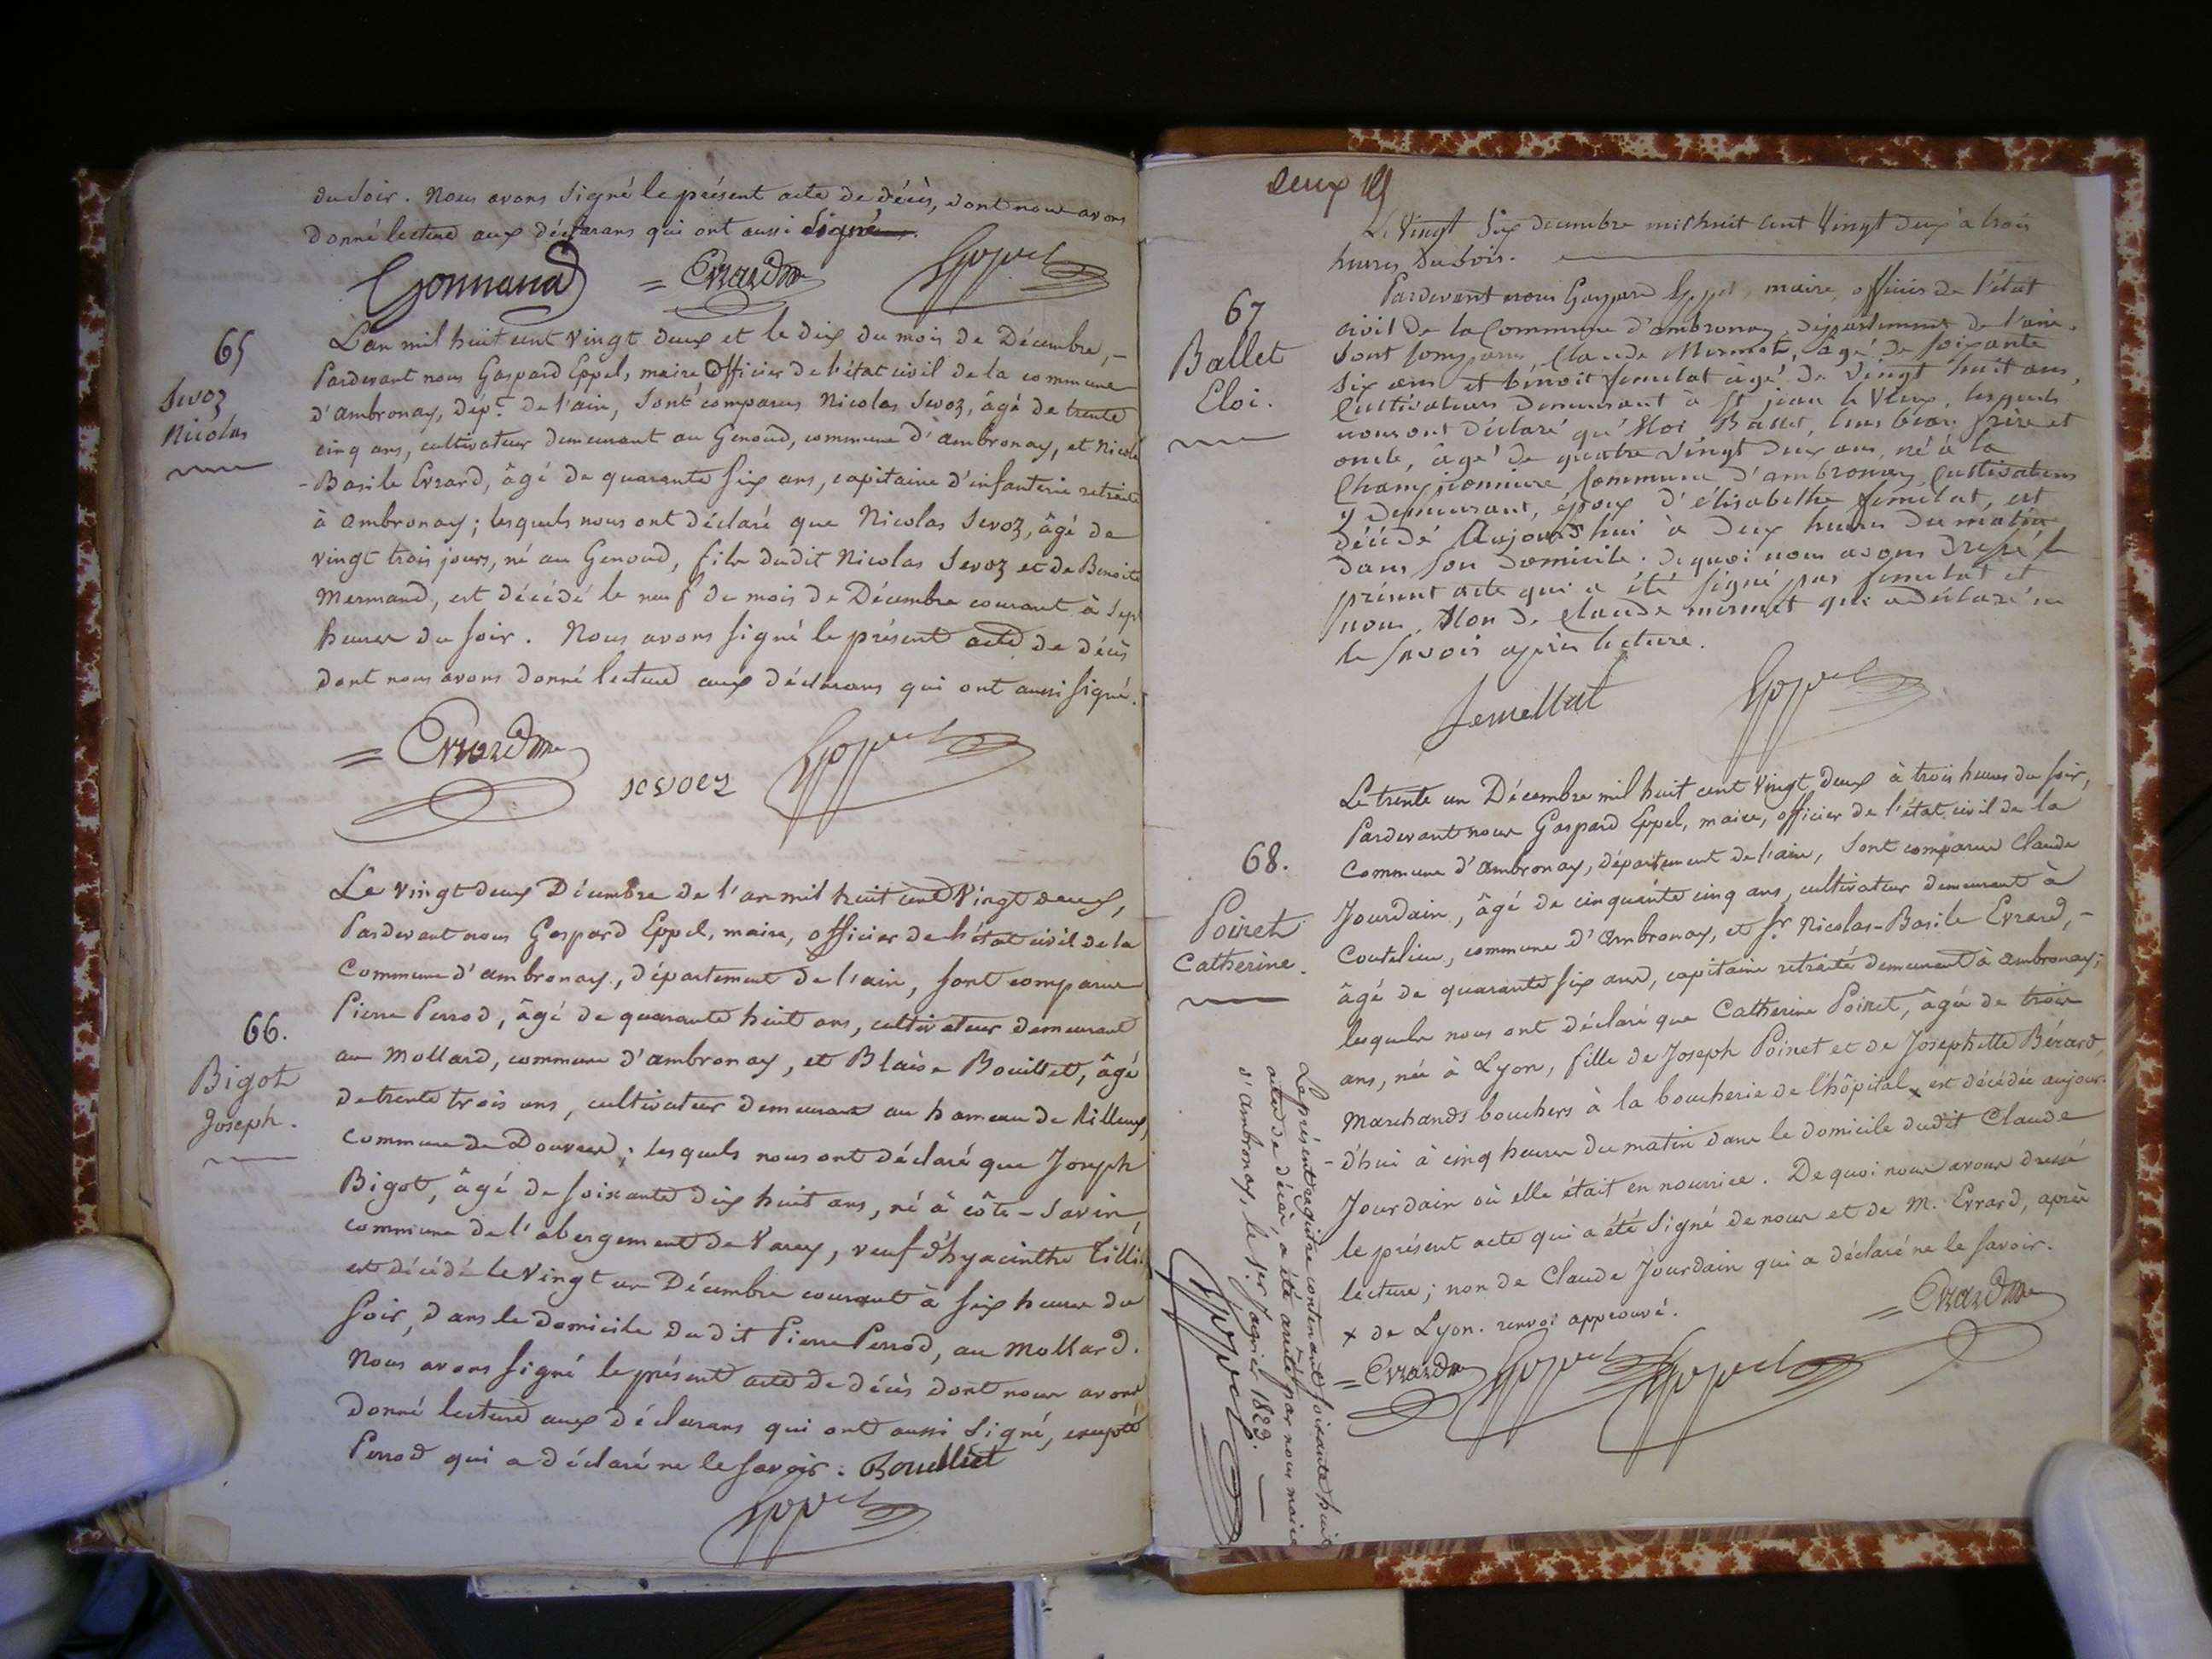 du soir. Nous avons signé le présent acte de décès, dont nous avons
donné lecture aux déclarans qui ont aussi signé.
Gonnand = Evrard Eppel
65
Sevoz
Nicolas
L'an mil huit cent vingt deux et le dix du mois de Décembre, -
Pardevant nous Gaspard Eppel, maire, officier de l'état civil de la commune
d'ambronay, dépt. de l'ain, sont comparus Nicolas Sevoz, âgé de trente
cinq ans, cultivateur demeurant au Genoud, commune d'ambronay, et Nicolas
-Basile Evrard, âgé de quarante six ans, capitaine d'infanterie retraité
à ambronay; lesquels nous ont déclaré que Nicolas Sevoz, âgé de
vingt trois jours, né au Genoud, fils dudit Nicolas Sevoz et de Benoite
Mermand, est décédé le neuf de mois de Décembre courant à sept
heures du soir. Nous avons signé le présent acte de décès
dont nous avons donné lecture aux déclarans qui ont aussi signé.
= Evrard sevoez Eppel
66.
Bigot
Joseph.
Le vingt deux Décembre de l'an mil huit cent vingt deux,
Pardevant nous Gaspard Eppel, maire, officier de l'état civil de la
commune d'ambronay, département de l'ain, sont comparus
Pierre Perrod, âgé de quarante huit ans, cultivateur demeurant
au Mollard, commune d'ambronay, et Blaise Bouillet, âgé
de trente trois ans, cultivateur demeurant au hameau de Rilleux,
commune de Douvres; lesquels nous ont déclaré que Joseph
Bigot, âgé de soixante dix huit ans, né à côte-Savin
commune de l'abergement de Varey, veuf d'hyacinthe
est décédé le vingt un Décembre courant à six heures du
soir, dans le domicile dudit Pierre Perrod, au Mollard.
Nous avons signé le présent acte de décès dont nous avons
donné lecture aux déclarans qui ont aussi signé, excepté
Perrod qui a déclaré ne le savoir. Bouilliet
Eppel
deux
67
Ballet
Eloi.
Le vingt six decembre mil huit cent vingt deux à trois
heures du soir.
Pardevant nous Gaspard Eppel, maire, officier de l'état
civil de la Commune d'ambronay, département de l'ain.
sont comparus Claude Mermet, âgé de soixante
six ans et bénoit femelat âgé de vingt huit ans,
Cultivateurs demeurant à St jean le Vieux, lesquels
nous ont déclaré qu'Eloi Ballet, leur beau frère et
oncle, âgé de quatre vingt deux ans, né à la
Championnière Commune d'ambronay, Cultivateur
y demeurant, époux d'élisabethe femelat, est
décédé Aujourd'hui à deux heures du matin
dans son domicile. de quoi nous avons dressé le
présent acte qui a été signé par femelat et
nous. Non de Claude mermet qui a déclaré ne
le savoir après lecture.
femellat Eppel
68.
Poinet
Catherine.
Le trente un Décembre mil huit cent vingt deux à trois heures du soir,
Pardevant nous Gaspard Eppel, maire, officier de l'état civil de la
commune d'ambronay, département de l'ain, sont comparus Claude
Jourdain, âgé de cinquante cinq ans, cultivateur demeurant à
Coutelieu, commune d'ambronay, et Sr. Nicolas-Basile Evrard, -
âgé de quarante six ans, capitaine retraité demeurant à ambronay;
lesquels nous ont déclaré que Catherine Poinet, âgée de trois
ans, née à Lyon, fille de Joseph Poinet et de Josephette Bérard,
Marchands bouchers à la boucherie de l'hôpital x est décédée aujour-
-d'hui à cinq heures du matin dans le domicile dudit Claude
Jourdain où elle était en nourrice. De quoi nous avons dressé
le présent acte qui a été signé de nous et de M. Evrard, après
lecture; non de Claude Jourdain qui a déclaré ne le savoir.
x de Lyon. renvoi approuvé. = Evrard
= Evrard Eppel Eppel
Le présent registre contenant soixante huit
actes de décès, a été arrêté par nous maire
d'ambronay, le 1er. Janvier 1823.
Eppel